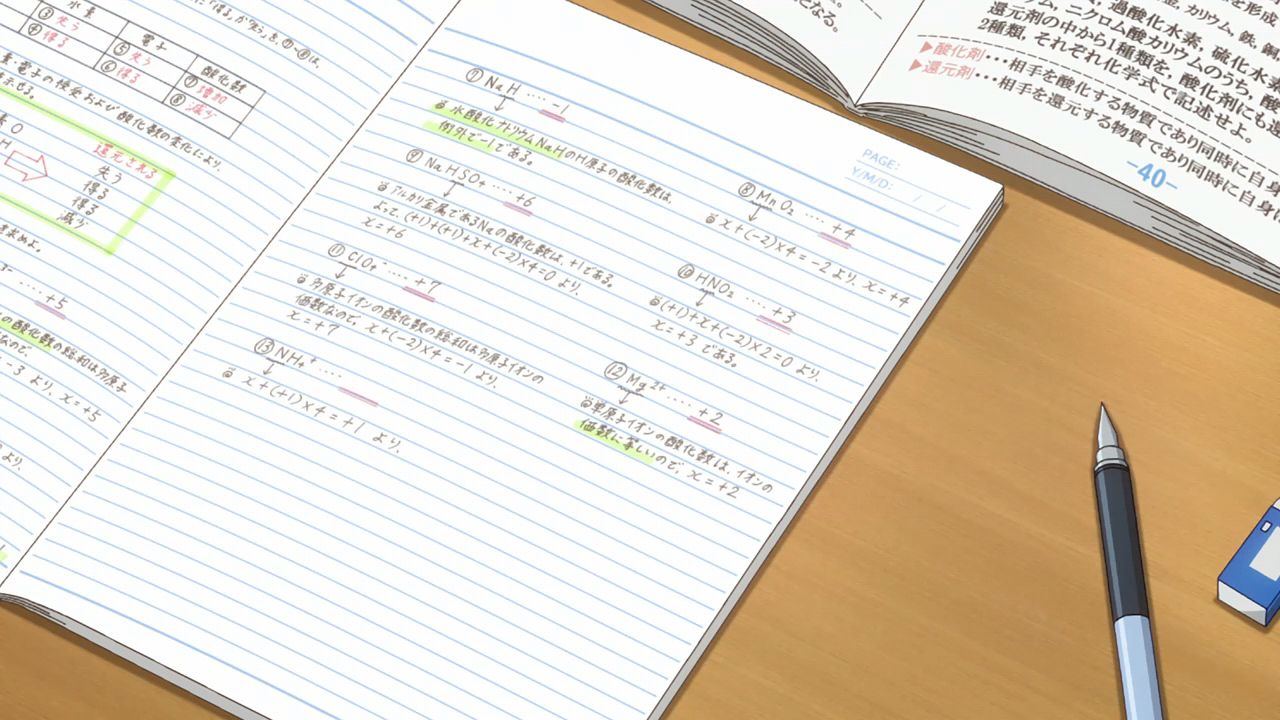 ③
水素
失う
④
得る
電子
⑤
失う
⑥
得る
酸化数
⑦
増加
⑧
減少
還元される
失う
得る
得る
減少
求めよ。
+5
-3 より、x=+5
より、
⑦ NaH ‥‥ -1
水酸化ナトリウムNaHのH原子の酸化数は、
例外で-1である。
⑨ NaHSO₄ ‥‥ +6
アルカリ金属であるNaの酸化数は、+1である。
よって、(+1)+(+1)+x+(-2)×4=0 より、
x=+6
⑪ ClO₄⁻ ‥‥ +7
多原子イオンの酸化数の総和は多原子イオンの
価数なので、x+(-2)×4=-1 より、
x=+7
⑬ NH₄⁺ ‥‥
x+(+1)×4=+1 より、
PAGE:
Y/M/D: / /
⑧ MnO₂ ‥‥ +4
x+(-2)×4=-2 より、x=+4
⑩ HNO₂ ‥‥ +3
(+1)+x+(-2)×2=0 より、
x=+3 である。
⑫ Mg²⁺ ‥‥ +2
単原子イオンの酸化数は、イオンの
価数に等しいので、x=+2
となる。
過酸化水素, 硫化水素
ニクロム酸カリウムのうち, 酸
還元剤の中から1種類を, 酸化剤にも還
2種類, それぞれ化学式で記述せよ。
▶酸化剤・・・相手を酸化する物質であり同時に自身
▶還元剤・・・相手を還元する物質であり同時に自身
-40-